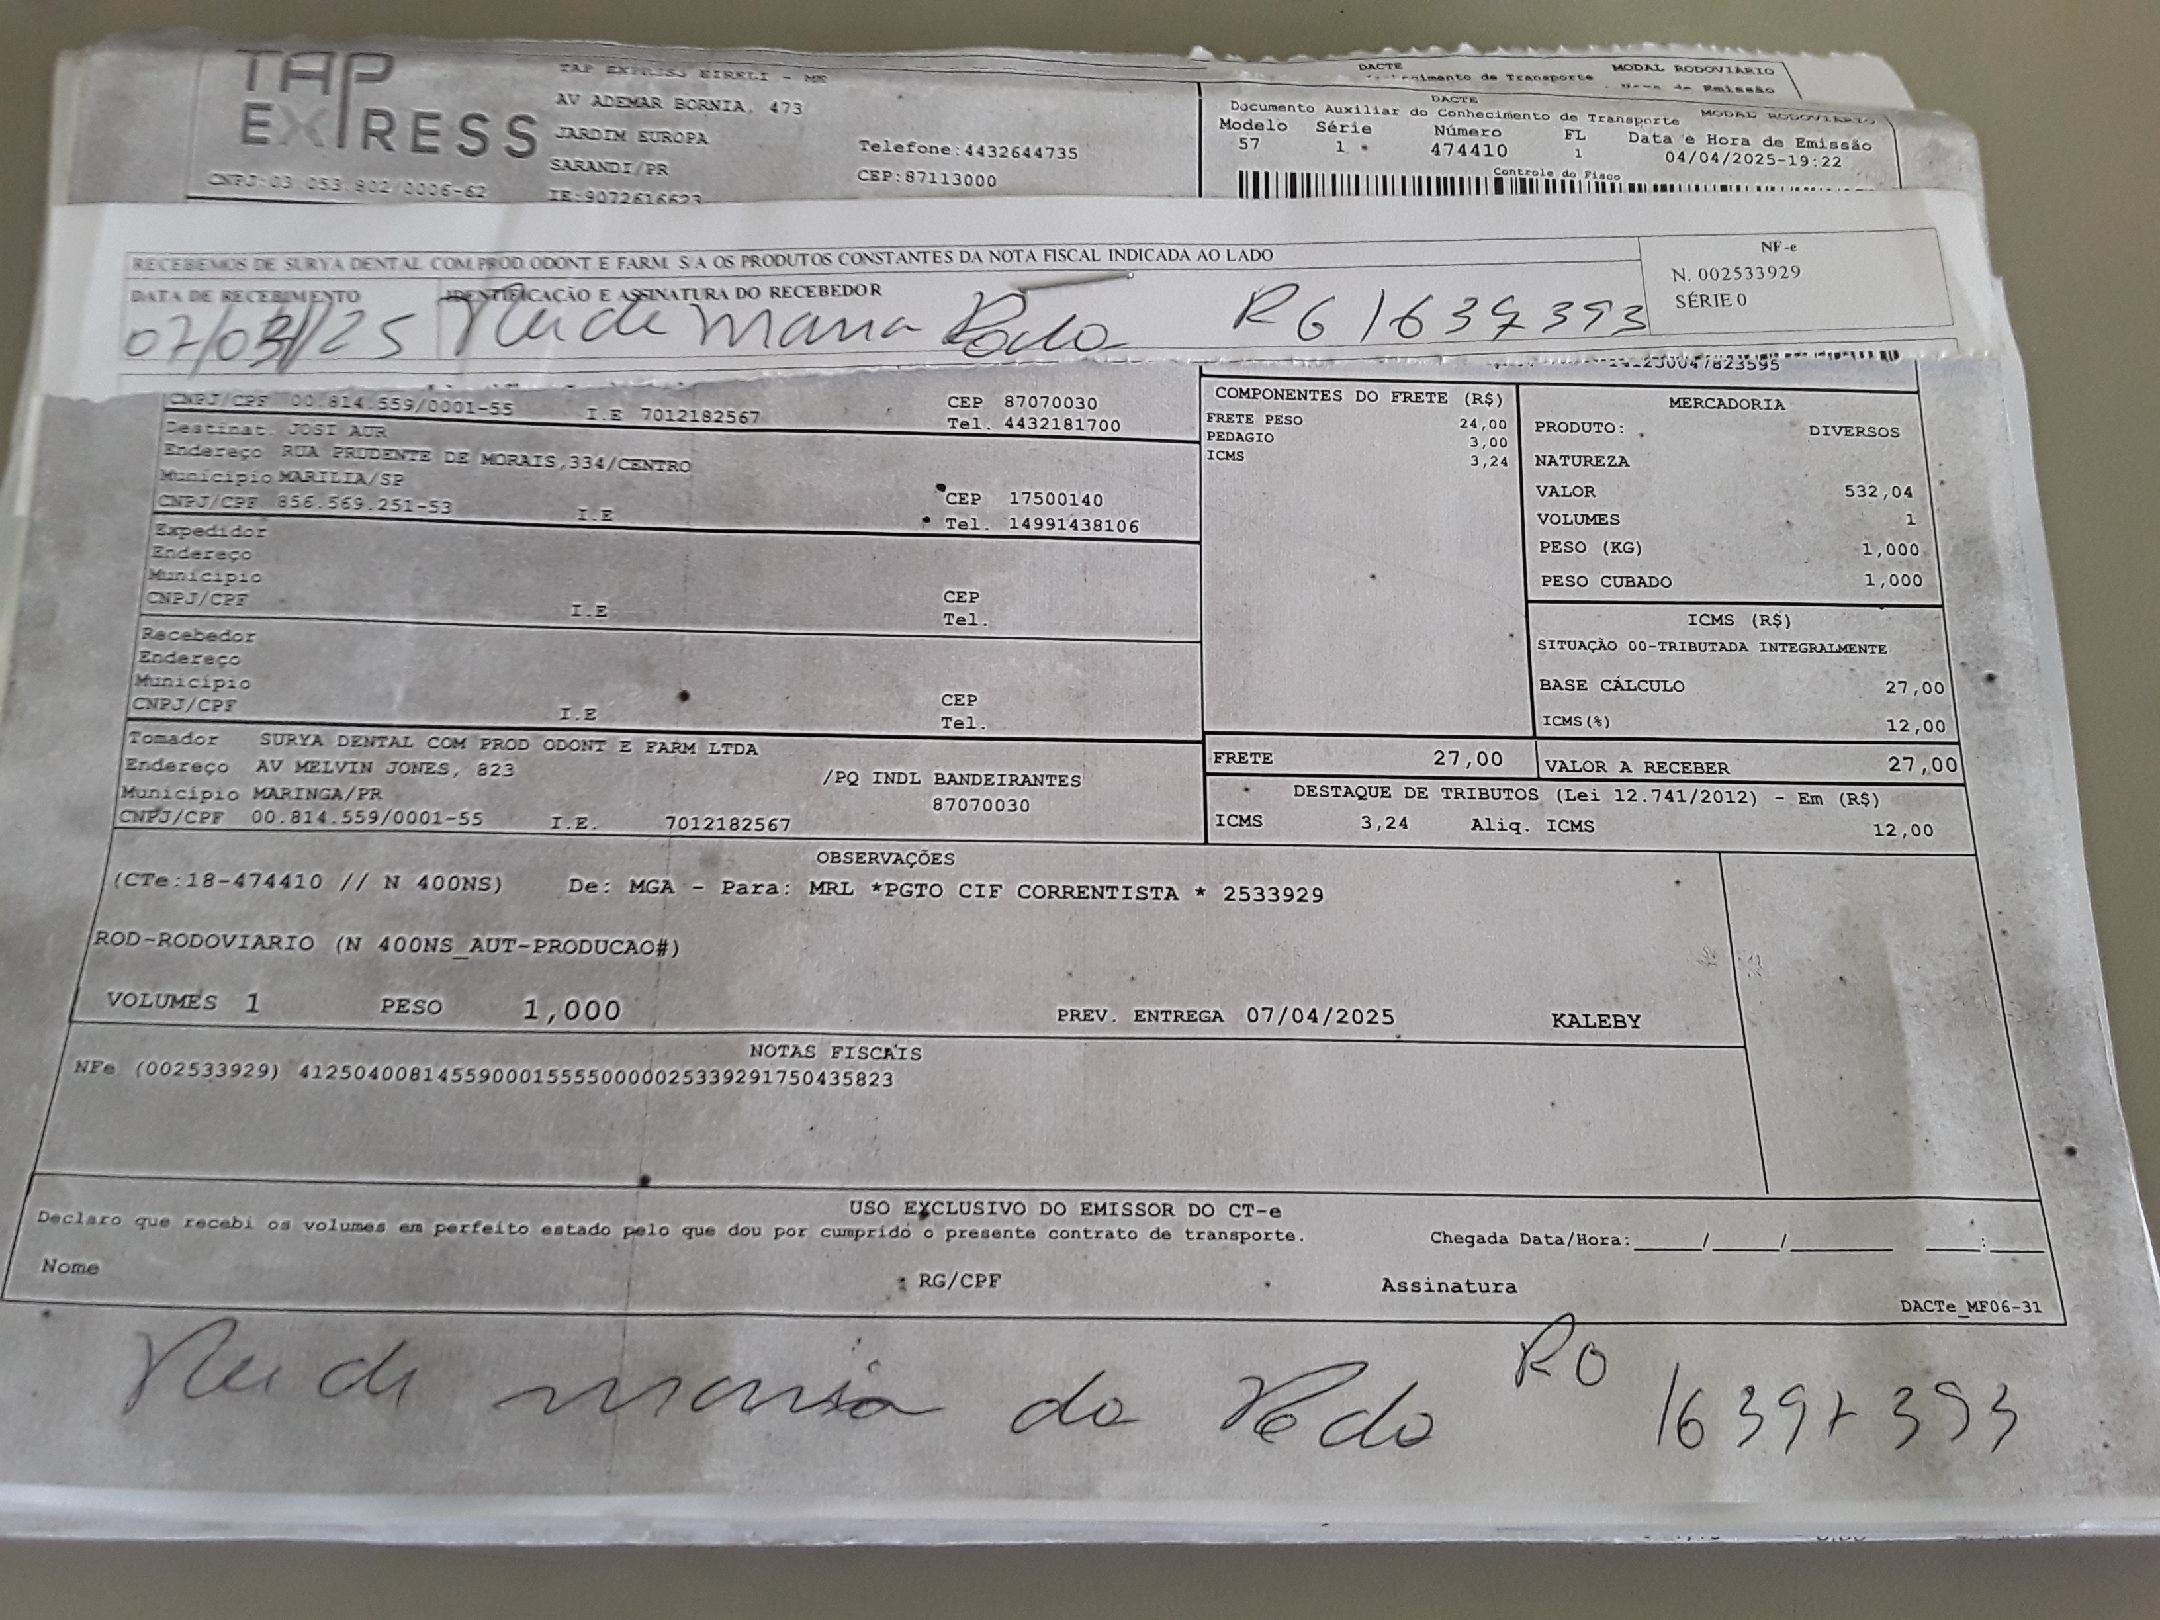 TAP
EXPRESS
TAP EXPRESS EIRELI - ME
AV ADEMAR BORNIA, 473
JARDIM EUROPA
SARANDI/PR
Telefone:4432644735
CEP:87113000
CNPJ:03.053.802/0006-62
IE:9072616623
DACTE MODAL RODOVIÁRIO
de Transporte
Emissão
DACTE MODAL RODOVIÁRIO
Documento Auxiliar do Conhecimento de Transporte
Modelo Série Número FL Data e Hora de Emissão
57 1 474410 1 04/04/2025-19:22
Controle do Fisco
RECEBEMOS DE SURYA DENTAL COM PROD ODONT E FARM S/A OS PRODUTOS CONSTANTES DA NOTA FISCAL INDICADA AO LADO
NF-e
N. 002533929
SÉRIE 0
DATA DE RECEBIMENTO IDENTIFICAÇÃO E ASSINATURA DO RECEBEDOR
Maria RG
CNPJ/CPF 00.814.559/0001-55 I.E 7012182567 CEP 87070030
Tel. 4432181700
Destinat. JOSI AUR
Endereço RUA PRUDENTE DE MORAIS,334/CENTRO
Município MARILIA/SP
CNPJ/CPF 856.569.251-53 I.E CEP 17500140
Tel. 14991438106
Expedidor
Endereço
Município
CNPJ/CPF I.E CEP
Tel.
Recebedor
Endereço
Município
CNPJ/CPF I.E CEP
Tel.
Tomador SURYA DENTAL COM PROD ODONT E FARM LTDA
Endereço AV MELVIN JONES, 823 /PQ INDL BANDEIRANTES
Município MARINGA/PR 87070030
CNPJ/CPF 00.814.559/0001-55 I.E. 7012182567
COMPONENTES DO FRETE (R$)
FRETE PESO 24,00
PEDAGIO 3,00
ICMS 3,24
MERCADORIA
PRODUTO: DIVERSOS
NATUREZA
VALOR 532,04
VOLUMES 1
PESO (KG) 1,000
PESO CUBADO 1,000
ICMS (R$)
SITUAÇÃO 00-TRIBUTADA INTEGRALMENTE
BASE CÁLCULO 27,00
ICMS(%) 12,00
FRETE 27,00 VALOR A RECEBER 27,00
DESTAQUE DE TRIBUTOS (Lei 12.741/2012) - Em (R$)
ICMS 3,24 Aliq. ICMS 12,00
OBSERVAÇÕES
(CTe:18-474410 // N 400NS) De: MGA - Para: MRL *PGTO CIF CORRENTISTA * 2533929
ROD-RODOVIARIO (N 400NS_AUT-PRODUCAO#)
VOLUMES 1 PESO 1,000 PREV. ENTREGA 07/04/2025 KALEBY
NOTAS FISCAIS
NFe (002533929) 41250400814559000155550000025339291750435823
USO EXCLUSIVO DO EMISSOR DO CT-e
Declaro que recebi os volumes em perfeito estado pelo que dou por cumprido o presente contrato de transporte.
Chegada Data/Hora:_____/_____/________ ____:____
Nome RG/CPF Assinatura
DACTe_MF06-31
maria da